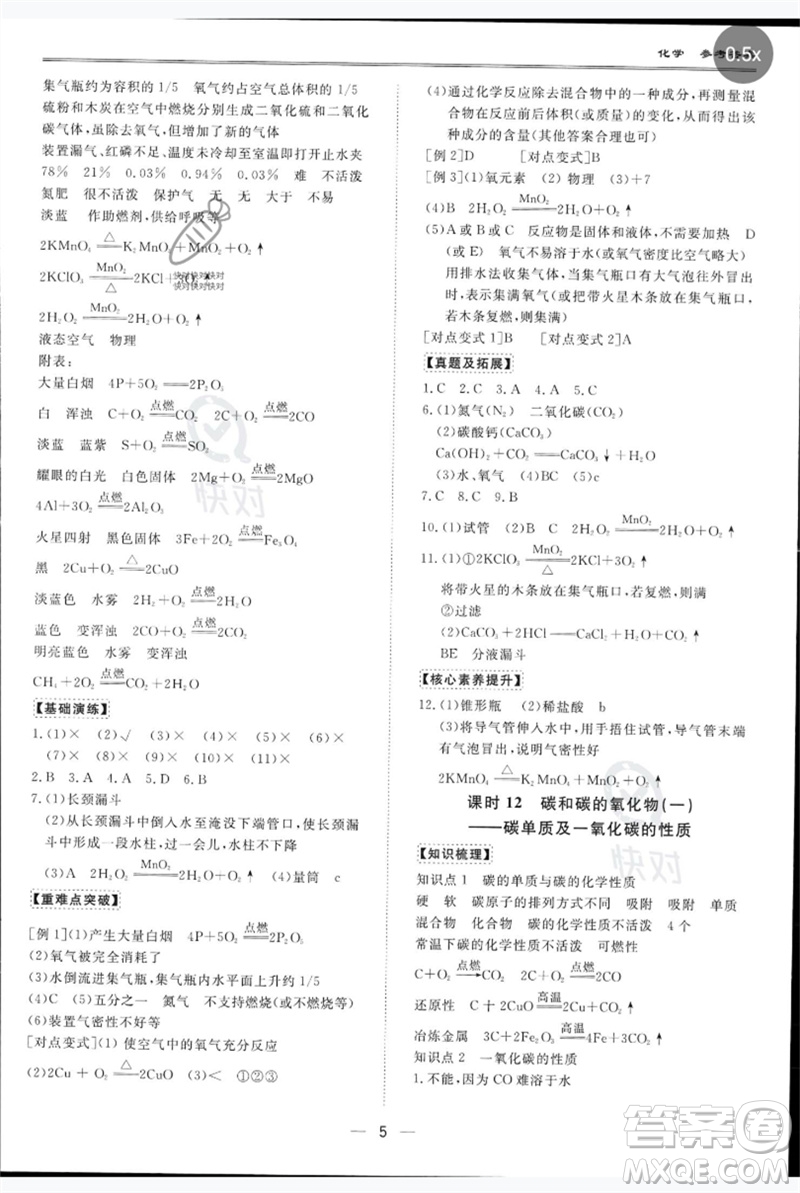 化学 参考
0.5x
集气瓶约为容积的 1/5 氧气约占空气总体积的 1/5
硫粉和木炭在空气中燃烧分别生成二氧化硫和二氧化
碳气体,虽除去氧气,但增加了新的气体
装置漏气、红磷不足、温度未冷却至室温即打开止水夹
78% 21% 0.03% 0.94% 0.03% 难 不活泼
氮肥 很不活泼 保护气 无 无 大于 不易
淡蓝 作助燃剂,供给呼吸等
2KMnO₄ =△= K₂MnO₄+MnO₂+O₂↑
2KClO₃ =MnO₂/△= 2KCl+3O₂↑
快对快对快对快对
快对快对快对快对
2H₂O₂ =MnO₂= 2H₂O+O₂↑
液态空气 物理
附表:
大量白烟 4P+5O₂ =点燃= 2P₂O₅
白 浑浊 C+O₂ =点燃= CO₂ 2C+O₂ =点燃= 2CO
淡蓝 蓝紫 S+O₂ =点燃= SO₂
耀眼的白光 白色固体 2Mg+O₂ =点燃= 2MgO
4Al+3O₂ =点燃= 2Al₂O₃
火星四射 黑色固体 3Fe+2O₂ =点燃= Fe₃O₄
黑 2Cu+O₂ =△= 2CuO
淡蓝色 水雾 2H₂+O₂ =点燃= 2H₂O
蓝色 变浑浊 2CO+O₂ =点燃= 2CO₂
明亮蓝色 水雾 变浑浊
CH₄+2O₂ =点燃= CO₂+2H₂O
【基础演练】
1.(1)× (2)√ (3)× (4)× (5)× (6)×
(7)× (8)× (9)× (10)× (11)×
2.B 3.A 4.A 5.D 6.B
7.(1)长颈漏斗
(2)从长颈漏斗中倒入水至淹没下端管口,长颈漏
斗中形成一段水柱,过一会儿,水柱不下降
(3)A 2H₂O₂ =MnO₂= 2H₂O+O₂↑ (4)量筒 c
【重难点突破】
[例 1](1)产生大量白烟 4P+5O₂ =点燃= 2P₂O₅
(2)氧气被完全消耗了
(3)水倒流进集气瓶,集气瓶内水平面上升约 1/5
(4)C (5)五分之一 氮气 不支持燃烧(或不燃烧)
(6)装置气密性不好等
[对点变式](1)使空气中的氧气充分反应
(2)2Cu + O₂ =△= 2CuO (3)< ①②③
(4)通过化学反应除去混合物中的一种成分,再测量混
合物在反应前后体积(或质量)的变化,从而确定该
种成分的含量(其他答案合理也可)
[例 2]D [对点变式]B
[例 3](1)氧元素 (2)物理 (3)+7
(4)B 2H₂O₂ =MnO₂= 2H₂O+O₂↑
(5)A或 B或 C 反应物是固体和液体,不需要加热 D
(或 E) 氧气不易溶于水(或密度比空气略大)
用排水法收集气体,当集气瓶口有大气泡向外冒出
时,表示集满氧气(或把带火星木条放在集气瓶口,
若木条复燃,则集满)
[对点变式 1]B [对点变式 2]A
【真题及拓展】
1.C 2.C 3.A 4.A 5.C
6.(1)氮气(N₂) 二氧化碳(CO₂)
(2)碳酸钙(CaCO₃)
Ca(OH)₂+CO₂══CaCO₃↓+H₂O
(3)水、氧气 (4)BC (5)c
7.C 8.C 9.B
10.(1)试管 (2)B C 2H₂O₂ =MnO₂= 2H₂O+O₂↑
11.(1)①2KClO₃ =MnO₂/△= 2KCl+3O₂↑
将带火星的木条放在集气瓶口,若复燃,则满
②过滤
(2)CaCO₃+2HCl══CaCl₂+H₂O+CO₂↑
BE 分液漏斗
【核心素养提升】
12.(1)锥形瓶 (2)稀盐酸 b
(3)将导气管伸入水中,用手捂住试管,导气管末端
有气泡冒出,说明气密性好
2KMnO₄ =△= K₂MnO₄+MnO₂+O₂↑
课时 12 碳和碳的氧化物(一)
——碳单质及一氧化碳的性质
【知识梳理】
知识点 1 碳的单质与碳的化学性质
硬 软 碳原子的排列方式不同 吸附 吸附
混合物 化合物 碳的化学性质不活泼 4 个
常温下碳的化学性质不活泼 可燃性
C+O₂ =点燃= CO₂ 2C+O₂ =点燃= 2CO
还原性 C+2CuO =高温= 2Cu+CO₂↑
冶炼金属 3C+2Fe₂O₃ =高温= 4Fe+3CO₂↑
知识点 2 一氧化碳的性质
1.不能,因为 CO 难溶于水
5
快对
快对
快对
答案圈
MXQE.COM